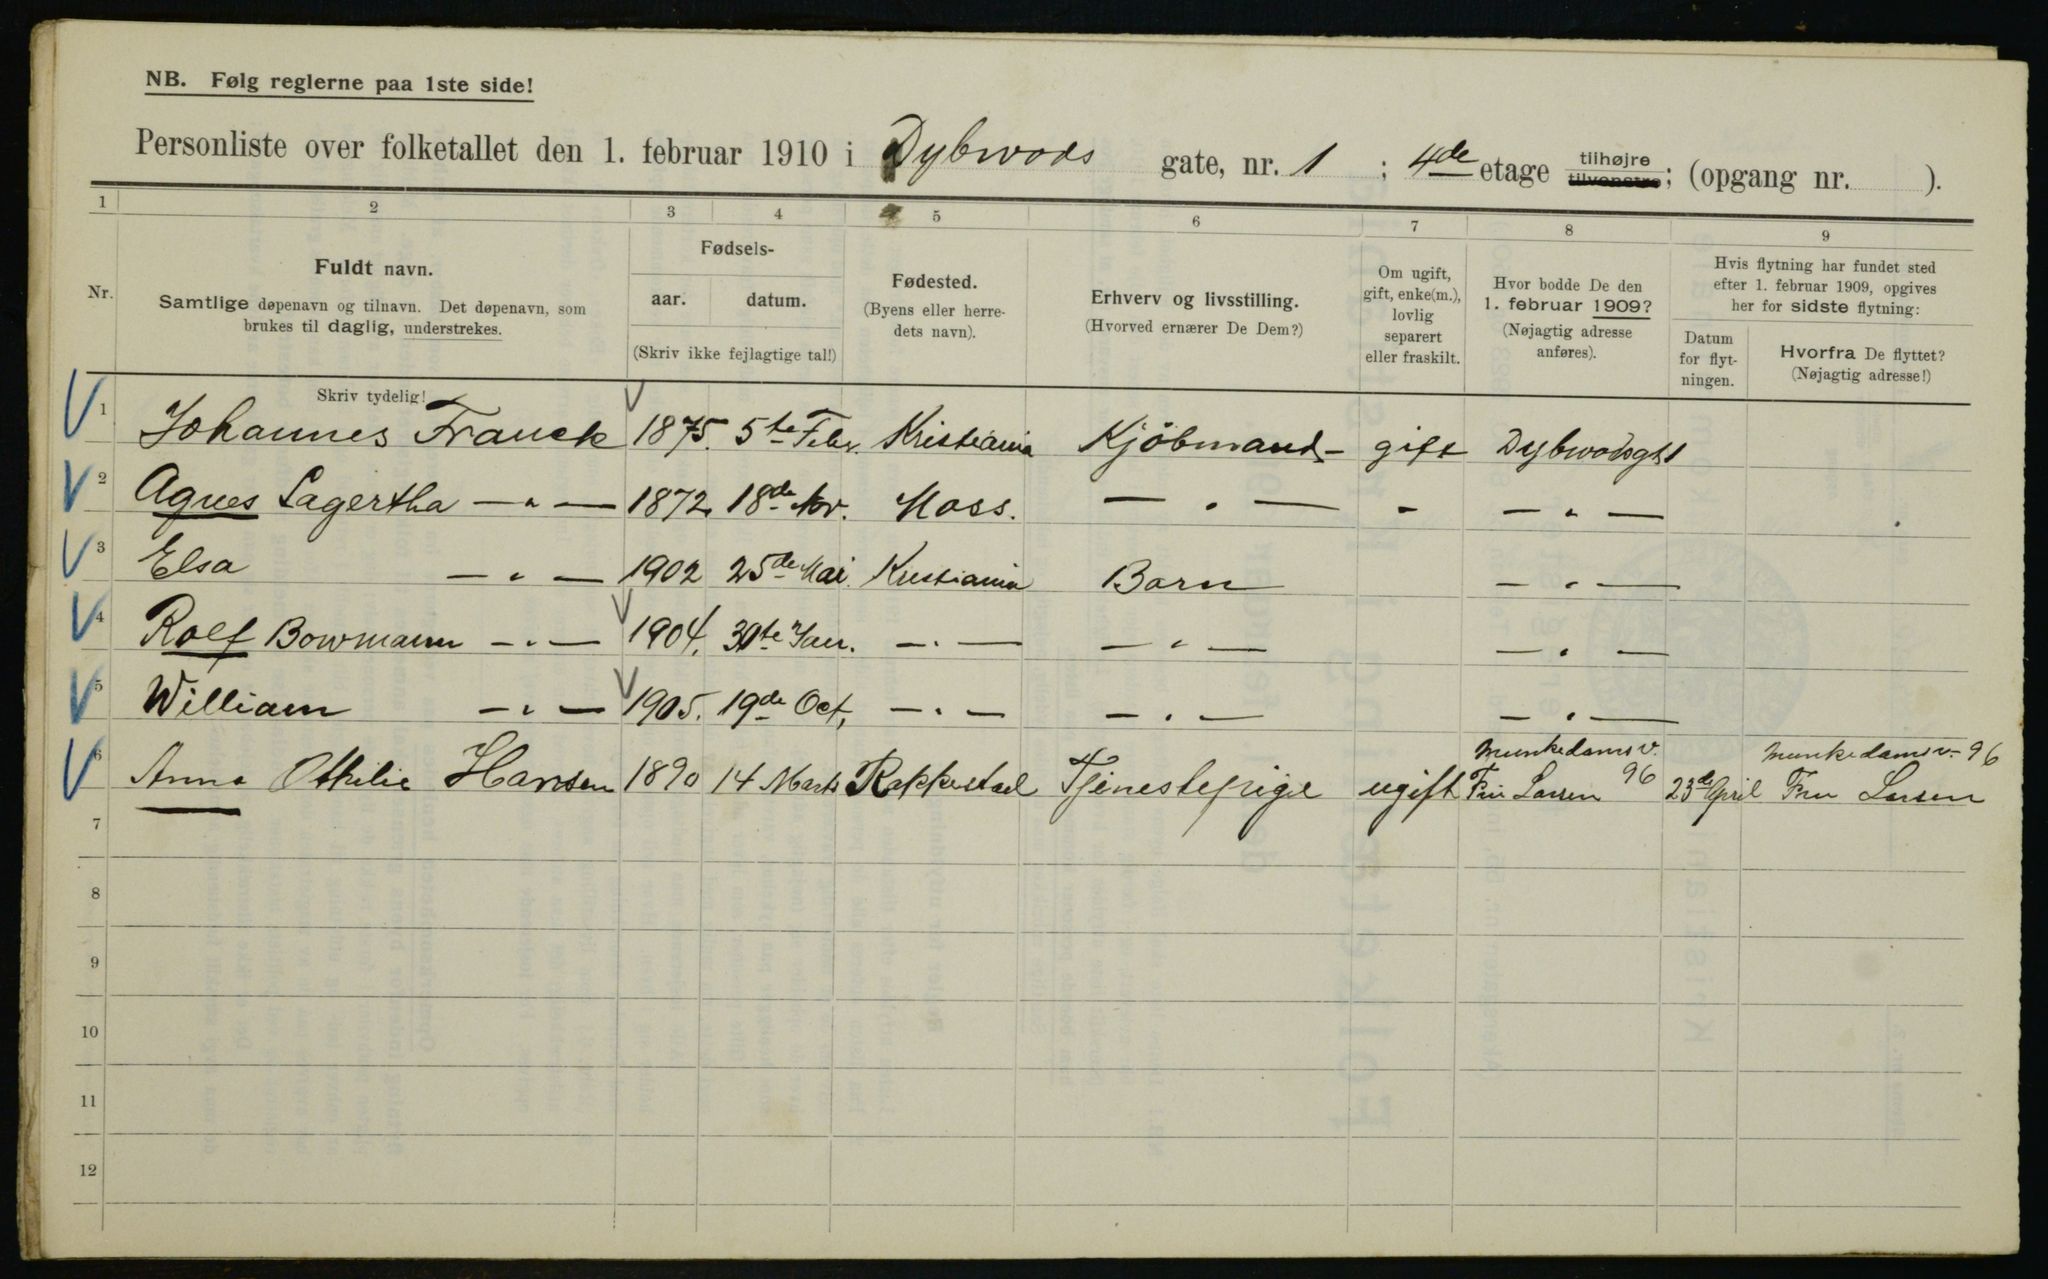 NB. Følg reglerne paa 1ste side!
Personliste over folketallet den 1. februar 1910 i Dybwads gate, nr. 1 ; 4de etage tilhøjre tilvenstre; (opgang nr. ).
1 2 3 4 5 6 7 8 9
Nr.
Fuldt navn.
Samtlige døpenavn og tilnavn. Det døpenavn, som
brukes til daglig, understrekes.
Skriv tydelig!
Fødsels-
aar. datum.
(Skriv ikke fejlagtige tal!)
Fødested.
(Byens eller herre-
dets navn).
Erhverv og livsstilling.
(Hvorved ernærer De Dem?)
Om ugift,
gift, enke(m.),
lovlig
separert
eller fraskilt.
Hvor bodde De den
1. februar 1909?
(Nøjagtig adresse
anføres).
Hvis flytning har fundet sted
efter 1. februar 1909, opgives
her for sidste flytning:
Datum
for flyt-
ningen.
Hvorfra De flyttet?
(Nøjagtig adresse!)
1 Johannes Franck 1875. 5te Febr. Kristiania Kjöbmand gift Dybwadsgt 1
2 Agnes Lagertha — " — 1872. 18de Nov. Moss. — " — - — " —
3 Elsa — " — 1902 25de Mai. Kristiania Barn — " —
4 Rolf Bowmann — " — 1904. 30te Jan. — " — — " — — " —
5 William — " — 1905. 19de Oct. — " — — " — — " —
6 Anna Othilie Hansen 1890 14 Marts Rakkestad Tjenestepige ugift Munkedamsv. 96 Fru Larsen 23de April Munkedamsv. 96 Fru Larsen
7
8
9
10
11
12